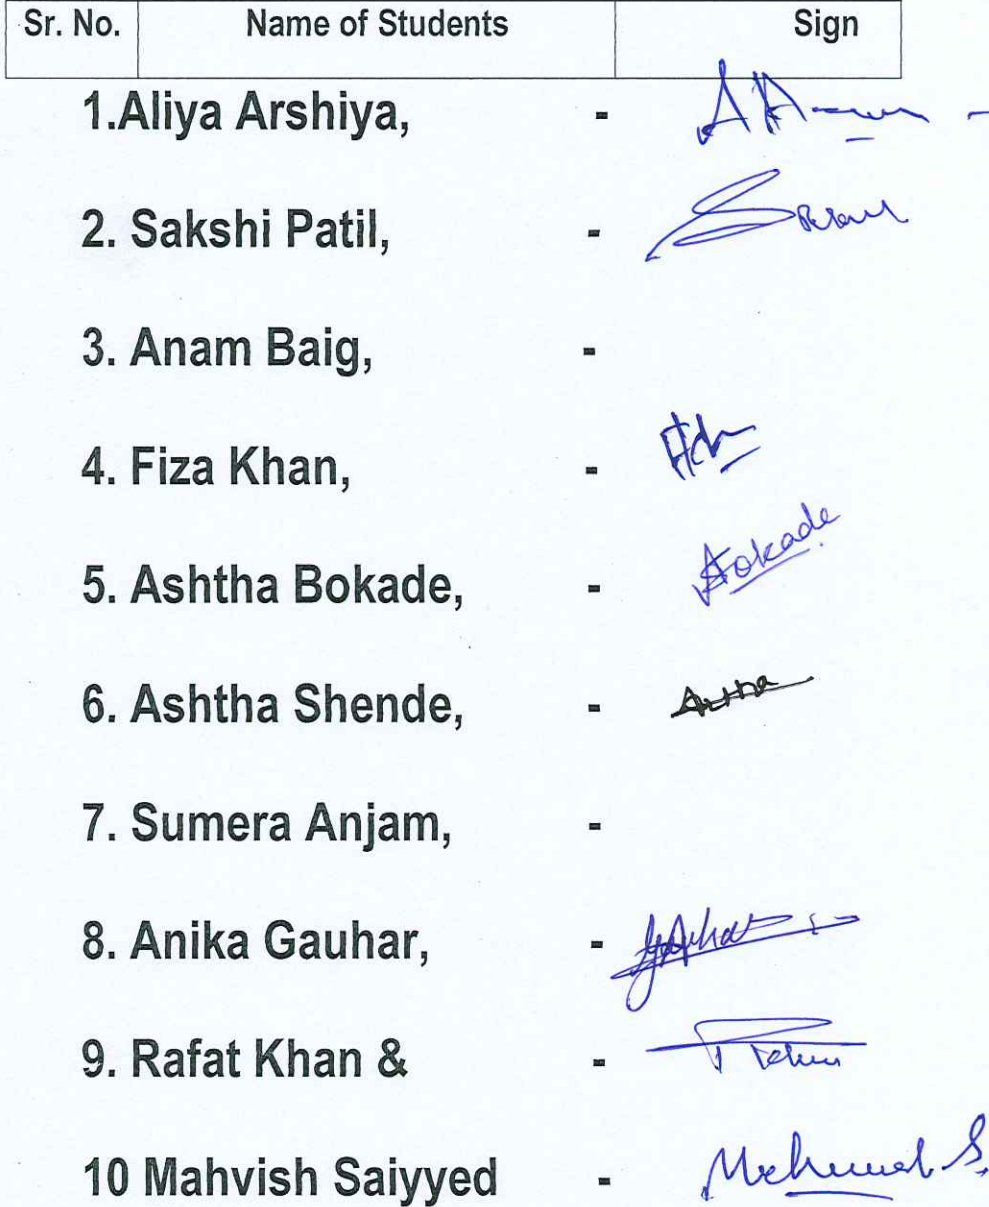 Sr. No. Name of Students Sign
1.Aliya Arshiya, -
2. Sakshi Patil, -
3. Anam Baig, -
4. Fiza Khan, -
5. Ashtha Bokade, - Bokade
6. Ashtha Shende, - Astha
7. Sumera Anjam, -
8. Anika Gauhar, -
9. Rafat Khan & -
10 Mahvish Saiyyed -